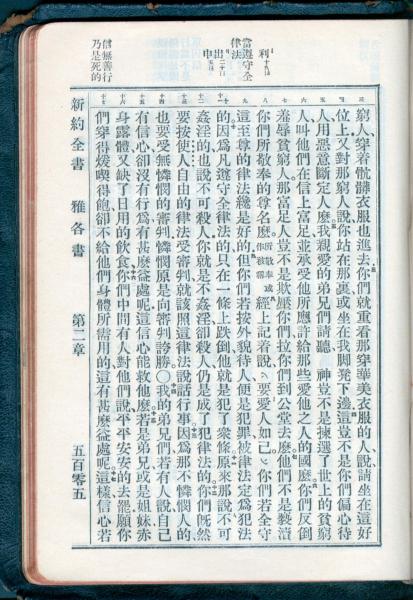 當遵守全
律法
信無善行
乃是死的
窮人、穿着骯髒衣服也進去、你們就重看那穿華美衣服的人、說、請坐在這好
位上、又對那窮人說、你站在那裏、或坐在我脚凳下邊、這豈不是你們偏心待
人、用惡意斷定人麼。我親愛的弟兄們、請聽、　神豈不是揀選了世上的貧窮
人、叫他們在信上富足、並承受他所應許給那些愛他之人的國麼。你們反倒
羞辱貧窮人。那富足人豈不是欺壓你們、拉你們到公堂去麼。他們不是褻瀆
你們所敬奉的尊名麼。所敬奉或作被稱經上記着說、要愛人如己。你們若全守
這至尊的律法纔是好的。但你們若按外貌待人、便是犯罪、被律法定為犯法
的。因為凡遵守全律法的、只在一條上跌倒、他就是犯了衆條。原來那說不可
姦淫的、也說不可殺人。你就是不姦淫、卻殺人、仍是成了犯律法的。你們既然
要按使人自由的律法受審判、就該照這律法說話行事。因為那不憐憫人的、
也要受無憐憫的審判。憐憫原是向審判誇勝。○我的弟兄們、若有人說、自己
有信心、卻沒有行為、有甚麼益處呢。這信心能救他麼。若是弟兄、或是姐妹、赤
身露體、又缺了日用的飲食、你們中間有人對他們說、平平安安的去罷、願你
們穿得煖喫得飽、卻不給他們身體所需用的、這有甚麼益處呢。這樣信心若
新約全書　雅各書　第二章　五百零五